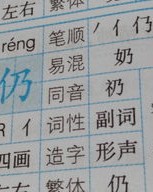 左右 繁体
réng 笔顺 ノ亻仍仍
易混 奶
仍 同音 礽
R 亻 词性 副词
四画 造字 形声
左右 繁体 仍